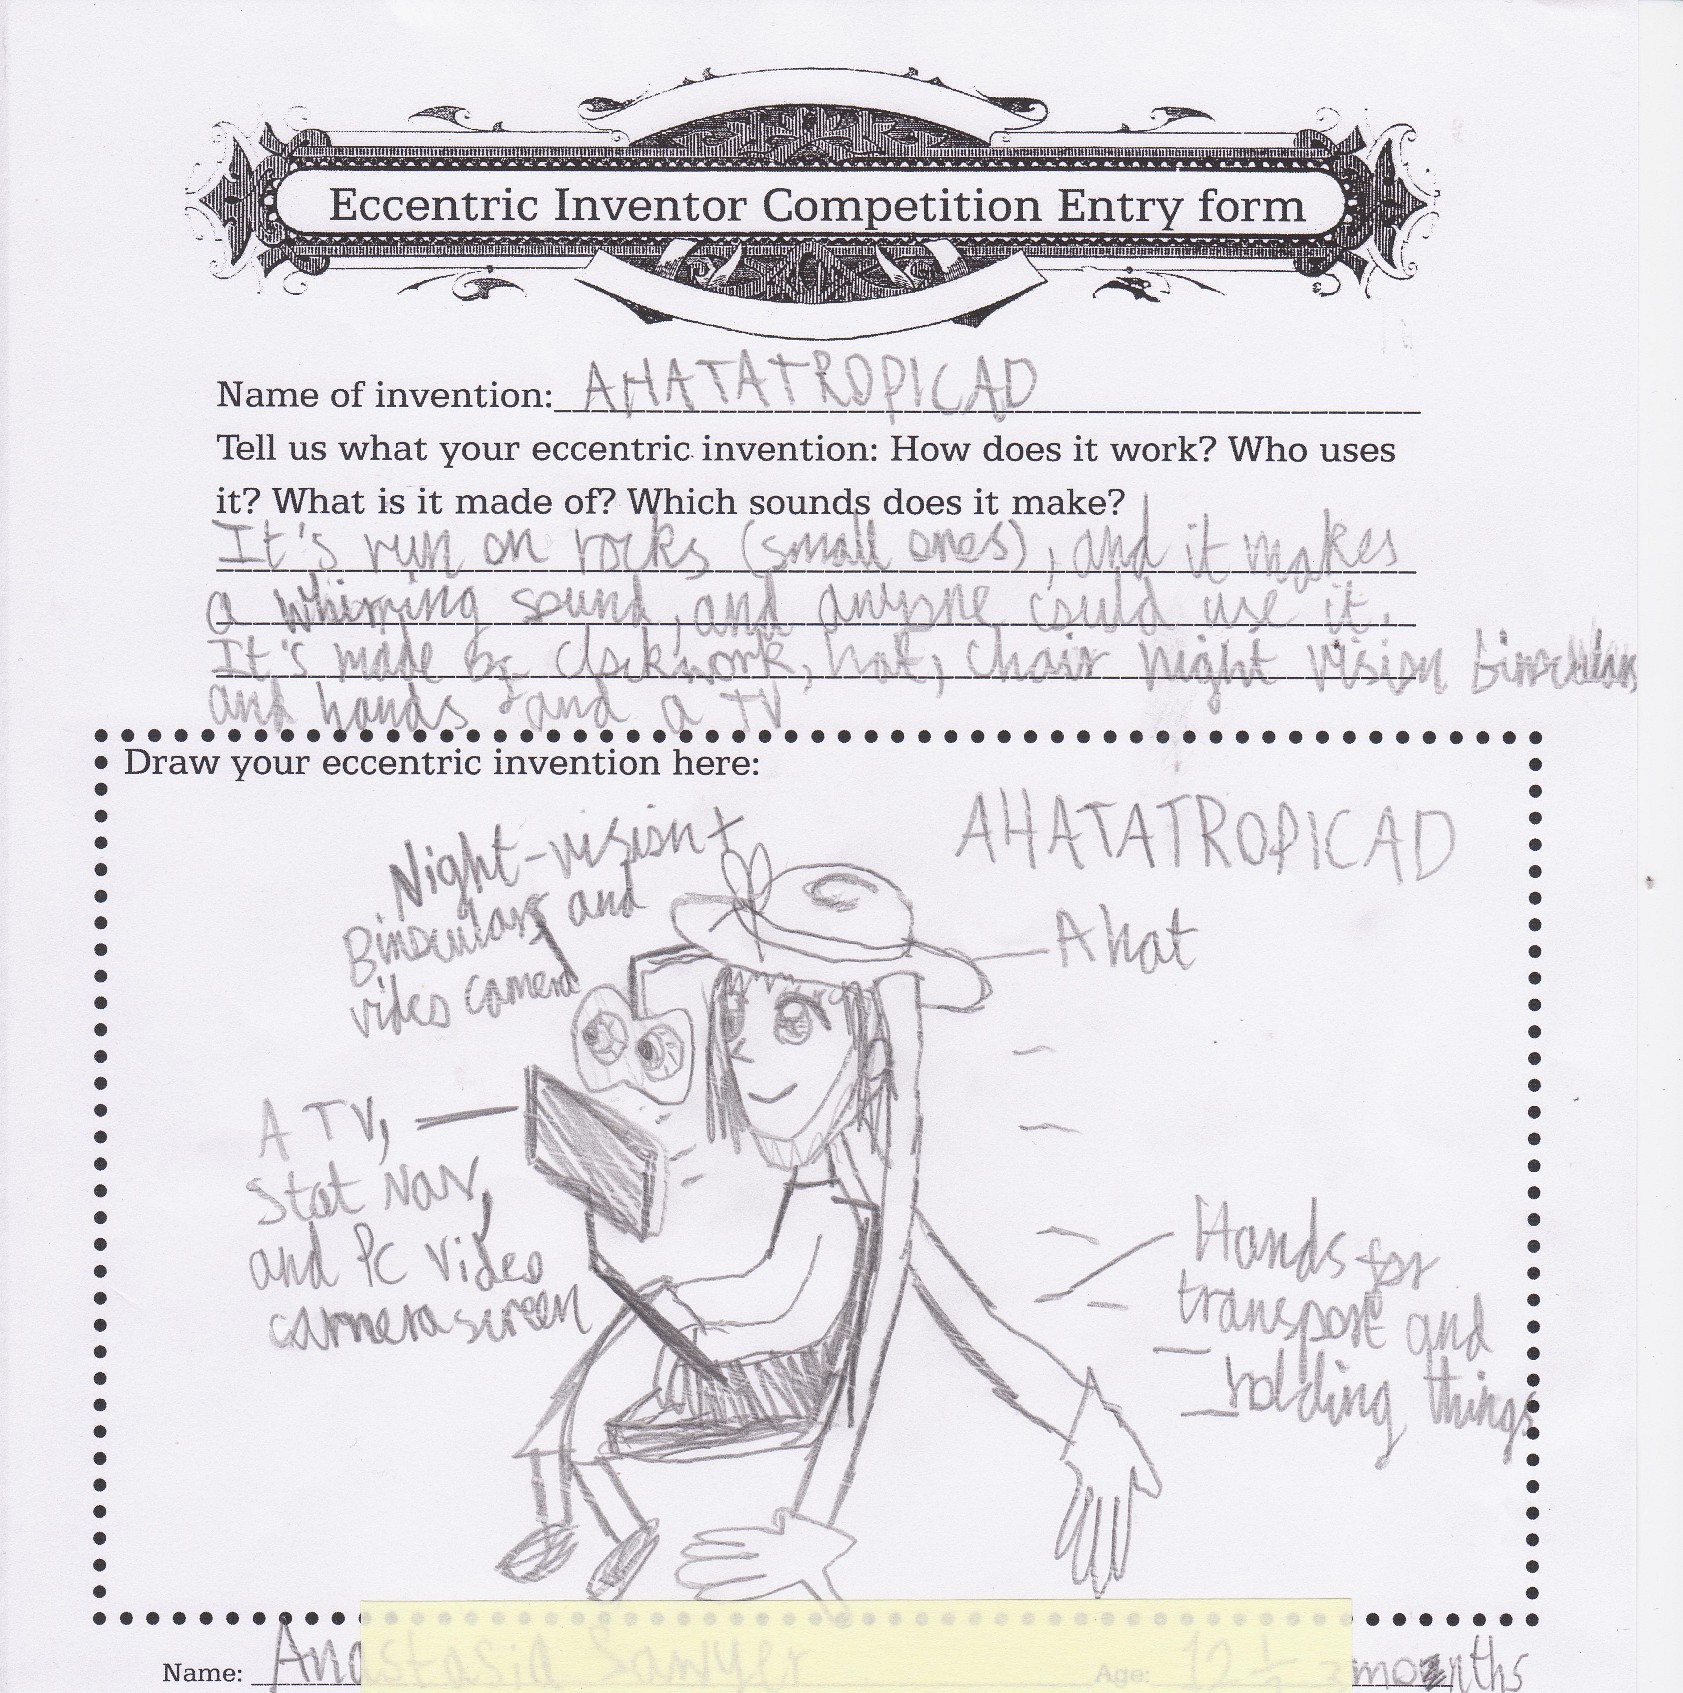 Eccentric Inventor Competition Entry form
Name of invention: AHATATROPICAD
Tell us what your eccentric invention: How does it work? Who uses
it? What is it made of? Which sounds does it make?
It's run on rocks (small ones), and it makes
a whirring sound, and anyone could use it.
It's made by clockwork, hat, chair night vision Binoculars
and hands and a TV
Draw your eccentric invention here:
AHATATROPICAD
Night-vision +
Binoculars and
video camera
A hat
A TV,
Stat Nav,
and PC video
camera screen
Hands for
transport and
holding things
Name: Anastasia Sawyer Age: 12 ½ months